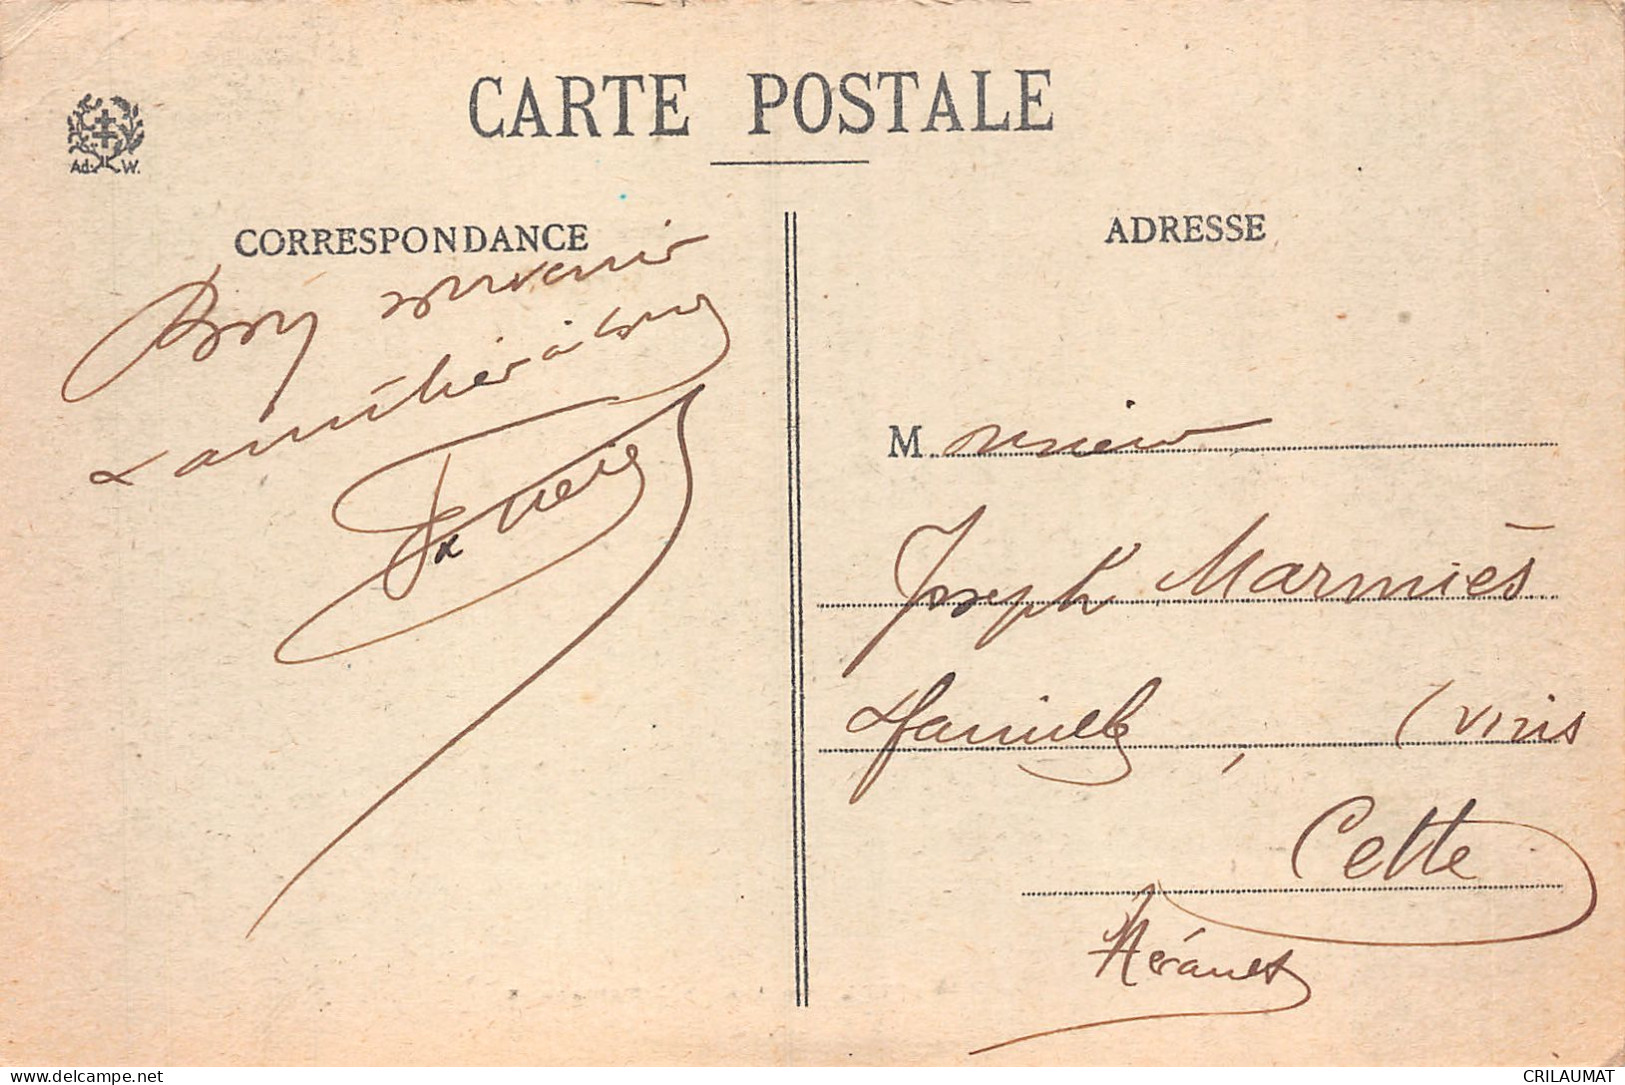 CARTE POSTALE
Ad. W.
CORRESPONDANCE
Bon souvenir
& amitiés à tous
ADRESSE
Monsieur
Joseph Marmiès
& famille, (vins
Cette
Hérault
delcampe.net
CRILAUMAT